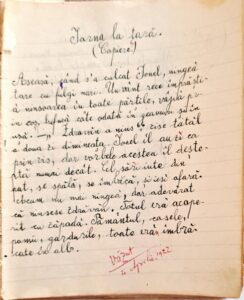 Iarna la țară.
(Copiere)
Aseară, când s'a culcat Ionel, ningea
tare cu fulgi mari. Un vânt rece împrăștia
ninsoarea în toate părțile, vâjâia pe
coș, bufnea câte odată în geamuri și în
ușă. — „Zdravăn a nins" — zise tatăl
a doua zi dimineața. Ionel îl auzi ca
prin vis, dar vorbele acestea îl deste-
ptară numai decât. El, sări iute din
pat, se spălă, se îmbrăcă, și ieși afară.
Acum nu mai ningea, dar adevărat
că ninsese zdravăn. Totul era acope-
rit cu zăpadă. Pământul, casele,
pomii, gardurile, toate erau îmbră-
cate în alb.
Văzut
4 Aprilie 1922